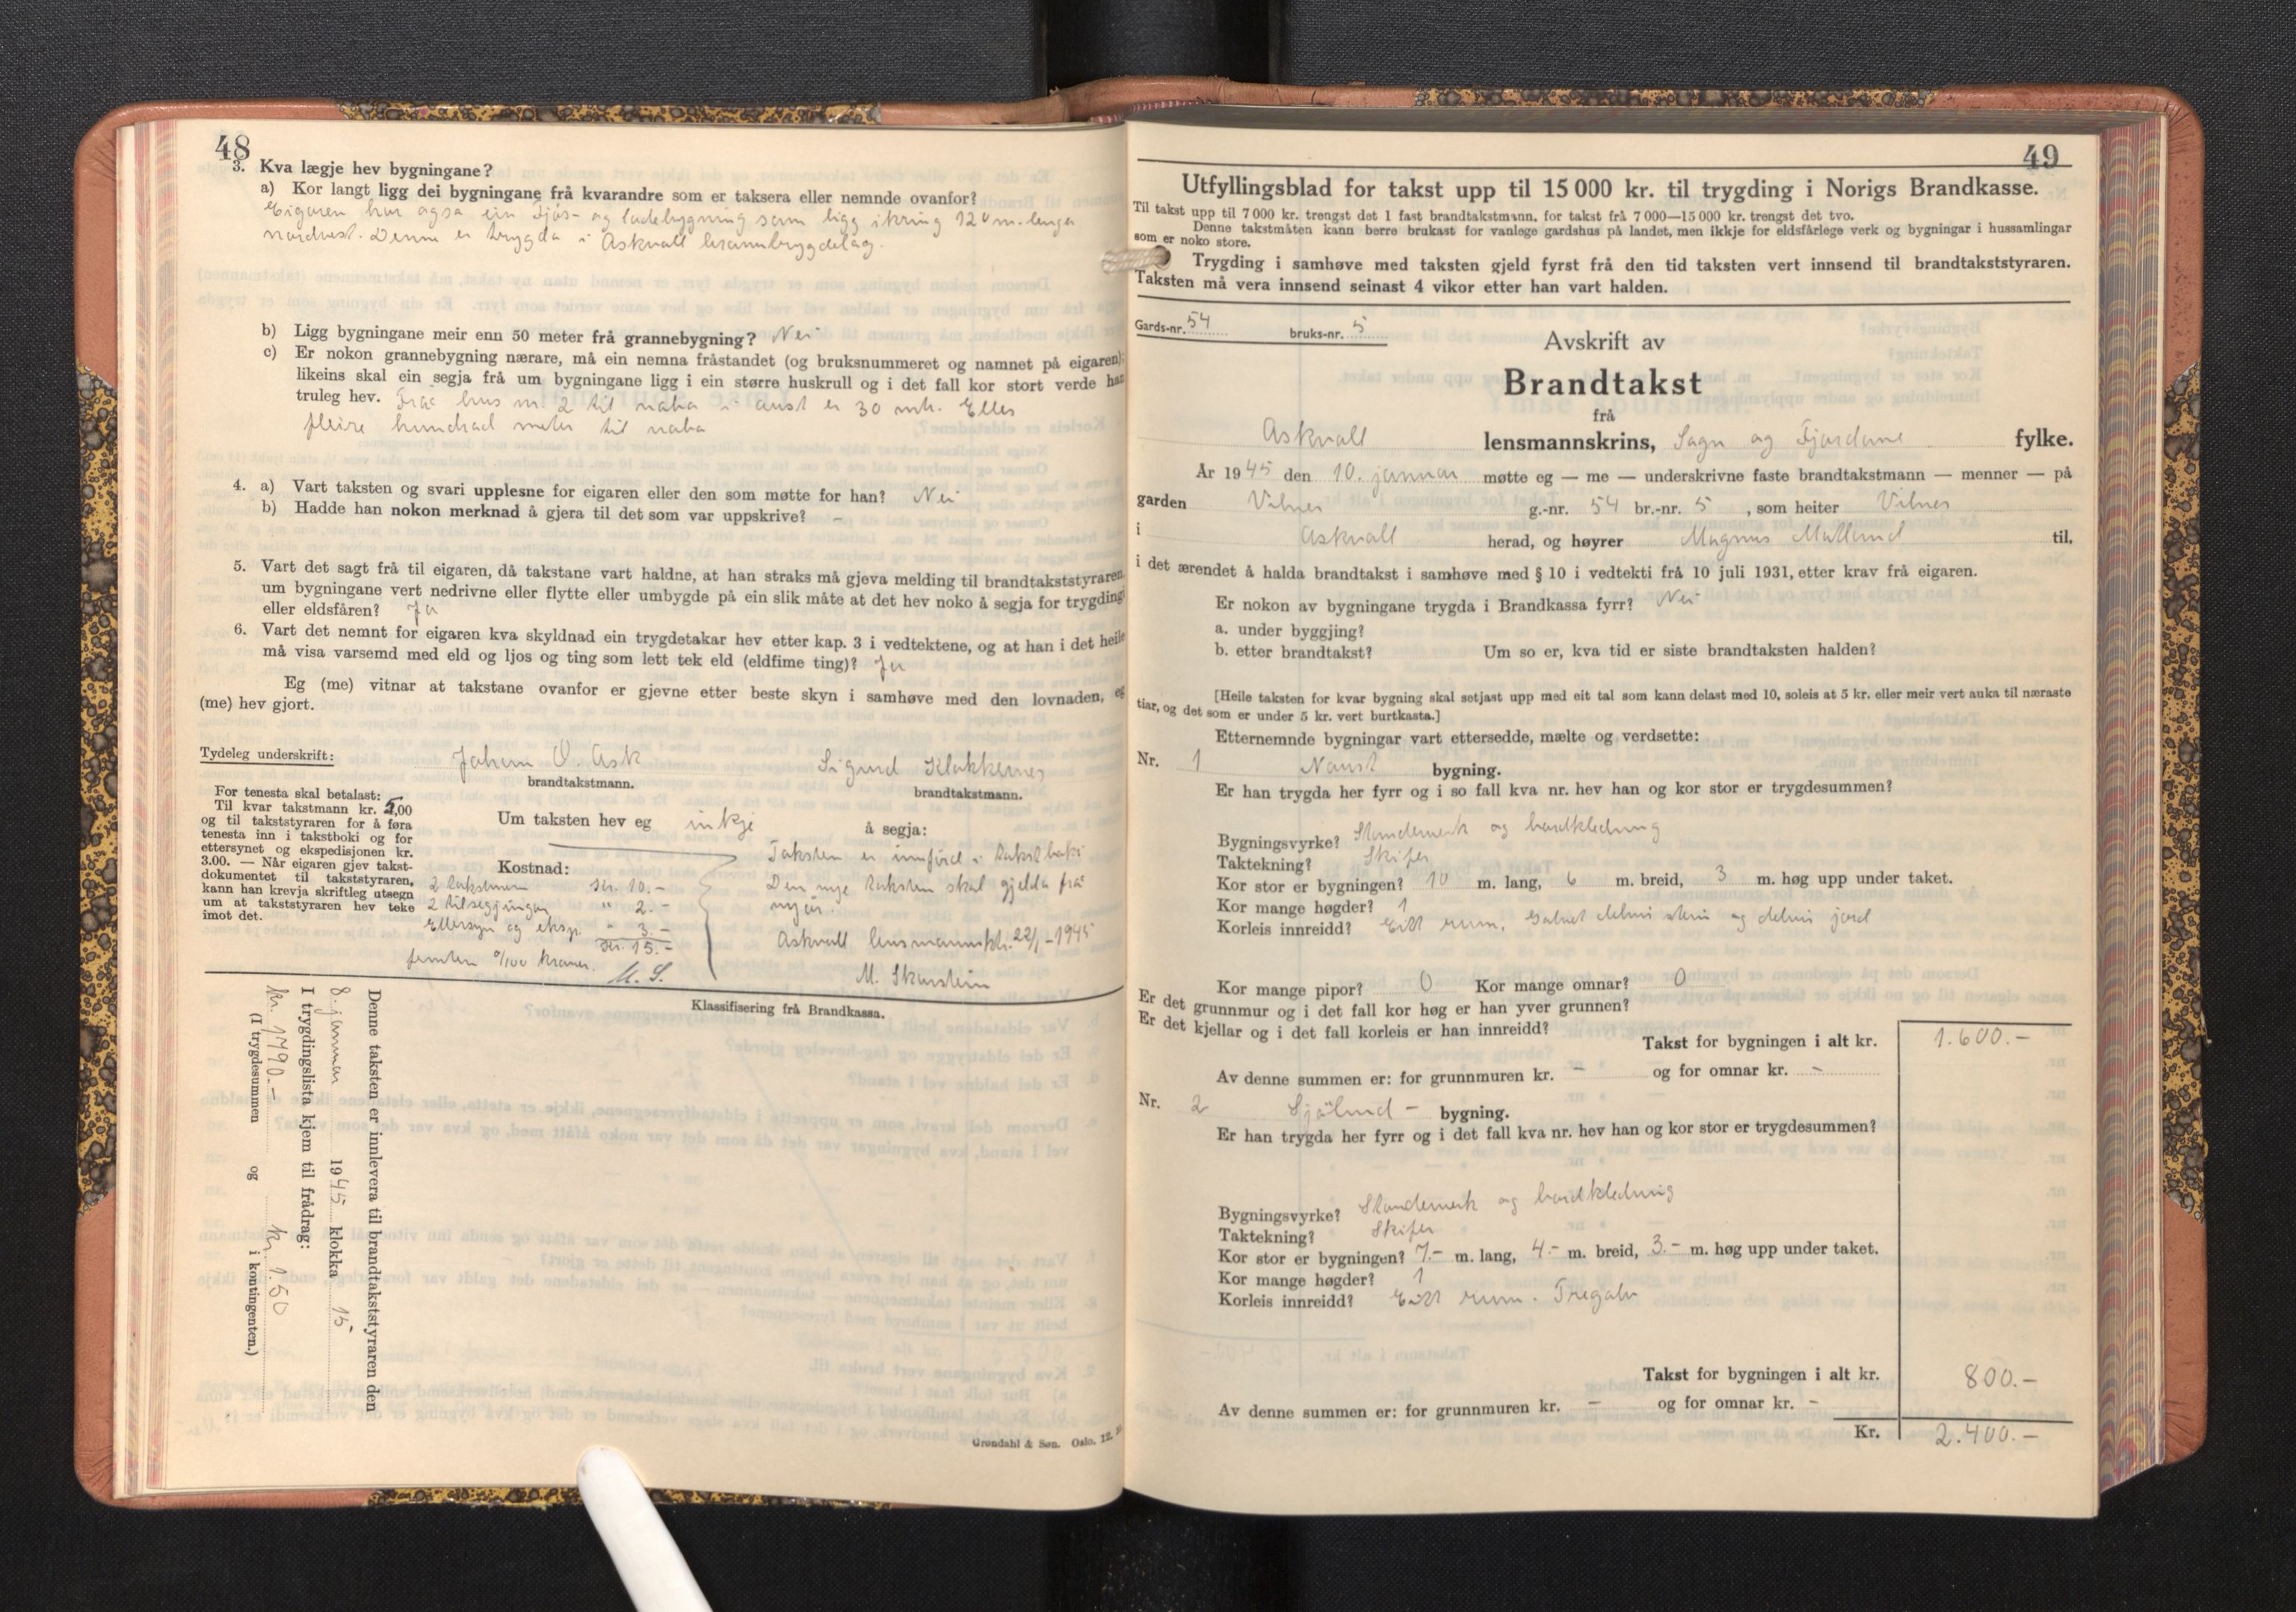 48
3. Kva lægje hev bygningane?
a) Kor langt ligg dei bygningane frå kvarandre som er taksera eller nemnde ovanfor?
Eigaren har også ein fjøs- og ladebygning som ligg ikring 120 m. lenga
nordvest. Denne er trygda i Askvoll branntrygdelag.
b) Ligg bygningane meir enn 50 meter frå grannebygning? Nei
c) Er nokon grannebygning nærare, må ein nemna fråstandet (og bruksnummeret og namnet på eigaren);
likeins skal ein segja frå um bygningane ligg i ein større huskrull og i det fall kor stort verde han
truleg hev. Frå hus nr. 2 til nabo i aust er 30 mtr. Elles
fleire hundrad meter til nabo
4. a) Vart taksten og svari upplesne for eigaren eller den som møtte for han? Nei
b) Hadde han nokon merknad å gjera til det som var uppskrive? -
5. Vart det sagt frå til eigaren, då takstane vart haldne, at han straks må gjeva melding til brandtakststyraren
um bygningane vert nedrivne eller flytte eller umbygde på ein slik måte at det hev noko å segja for trygding
eller eldsfåren? Ja
6. Vart det nemnt for eigaren kva skyldnad ein trygdetakar hev etter kap. 3 i vedtektene, og at han i det heile
må visa varsemd med eld og ljos og ting som lett tek eld (eldfime ting)? Ja
Eg (me) vitnar at takstane ovanfor er gjevne etter beste skyn i samhøve med den lovnaden, eg
(me) hev gjort.
Tydeleg underskrift: Johan O. Ask Sigurd Klakkernes
brandtakstmann. brandtakstmann.
For tenesta skal betalast:
Til kvar takstmann kr. 5,00
og til takststyraren for å føra
tenesta inn i takstboki og for
ettersynet og ekspedisjonen kr.
3.00. — Når eigaren gjev takst-
dokumentet til takststyraren,
kann han krevja skriftleg utsegn
um at takststyraren hev teke
imot det.
Um taksten hev eg inkje å segja:
Kostnad:
2 takstmenn kr. 10.-
2 tilsegjingar " 2.-
Ettersyn og eksp. " 3.-
kr. 15.-
femten 0/100 kroner.
M. S.
Taksten er innførd i takstboki
Den nye taksten skal gjelda frå
nyår.
Askvoll lensmannsktr. 22/1-1945
M. Skarstein
Klassifisering frå Brandkassa.
Denne taksten er innlevera til brandtakststyraren den
8. januar 1945 klokka 15
I trygdingslista kjem til frådrag:
kr. 1790.- og kr. 1.50
(I trygdesummen i kontingenten.)
Grøndahl & Søn. Oslo. 12.
49
Utfyllingsblad for takst upp til 15 000 kr. til trygding i Norigs Brandkasse.
Til takst upp til 7 000 kr. trengst det 1 fast brandtakstmann, for takst frå 7 000—15 000 kr. trengst det tvo.
Denne takstmåten kann berre brukast for vanlege gardshus på landet, men ikkje for eldsfårlege verk og bygningar i hussamlingar
som er noko store.
Trygding i samhøve med taksten gjeld fyrst frå den tid taksten vert innsend til brandtakststyraren.
Taksten må vera innsend seinast 4 vikor etter han vart halden.
Gards-nr. 54 bruks-nr. 5
Avskrift av
Brandtakst
frå
Askvoll lensmannskrins, Sogn og Fjordane fylke.
År 1945 den 10. januar møtte eg — me — underskrivne faste brandtakstmann — menner — på
garden Vilnes g.-nr. 54 br.-nr. 5 , som heiter Vilnes
i Askvoll herad, og høyrer Magnus Malland til,
i det ærendet å halda brandtakst i samhøve med § 10 i vedtekti frå 10 juli 1931, etter krav frå eigaren.
Er nokon av bygningane trygda i Brandkassa fyrr? Nei
a. under byggjing?
b. etter brandtakst? Um so er, kva tid er siste brandtaksten halden?
[Heile taksten for kvar bygning skal setjast upp med eit tal som kann delast med 10, soleis at 5 kr. eller meir vert auka til næraste
tiar, og det som er under 5 kr. vert burtkasta.]
Etternemnde bygningar vart ettersedde, mælte og verdsette:
Nr. 1 Naust bygning.
Er han trygda her fyrr og i so fall kva nr. hev han og kor stor er trygdesummen?
Bygningsvyrke? Standerverk og bordkledning
Taktekning? Skifer
Kor stor er bygningen? 10 m. lang, 6 m. breid, 3 m. høg upp under taket.
Kor mange høgder? 1
Korleis innreidd? Eitt rum, golvet delvis stein og delvis jord
Kor mange pipor? 0 Kor mange omnar? 0
Er det grunnmur og i det fall kor høg er han yver grunnen?
Er det kjellar og i det fall korleis er han innreidd?
Takst for bygningen i alt kr. 1.600.-
Av denne summen er: for grunnmuren kr. - og for omnar kr. -
Nr. 2 Sjåbud - bygning.
Er han trygda her fyrr og i det fall kva nr. hev han og kor stor er trygdesummen?
Bygningsvyrke? Standerverk og bordkledning
Taktekning? Skifer
Kor stor er bygningen? 7.- m. lang, 4.- m. breid, 3.- m. høg upp under taket.
Kor mange høgder? 1
Korleis innreidd? Eitt rum. Tregolv
Takst for bygningen i alt kr. 800.-
Av denne summen er: for grunnmuren kr. - og for omnar kr. -
Kr. 2.400.-